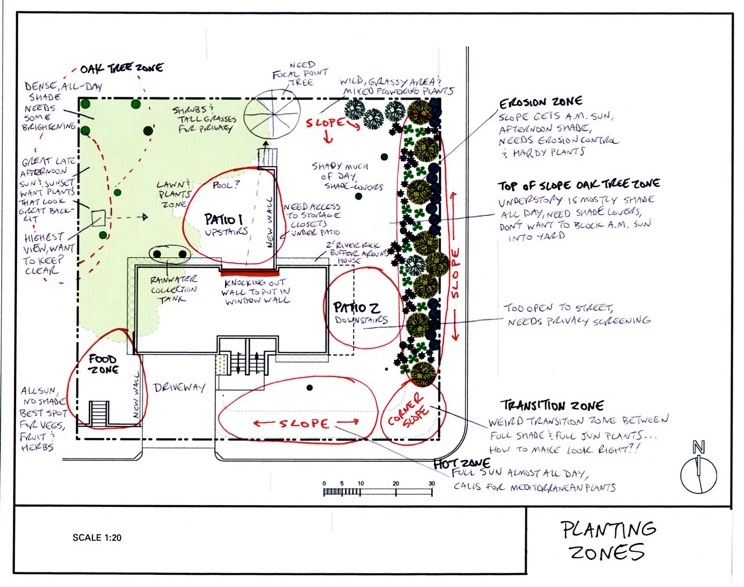 OAK TREE ZONE
DENSE, ALL-DAY
SHADE
NEEDS
SOME
BRIGHTENING
GREAT LATE
AFTERNOON
SUN & SUNSET
WANT PLANTS
THAT LOOK
GREAT BACK-
LIT
HIGHEST
VIEW, WANT
TO KEEP
CLEAR
SHRUBS &
TALL GRASSES
FOR PRIVACY
NEED
FOCAL POINT
TREE
WILD, GRASSY AREA &
MIXED FLOWERING PLANTS
SLOPE
SHADY MUCH
OF DAY,
SHADE-LOVERS
LAWN &
PLANTS
ZONE
POOL?
PATIO 1
UPSTAIRS
NEW WALL
NEED ACCESS
TO STORAGE
CLOSETS
UNDER PATIO
2' RIVER ROCK
BUFFER AROUND
HOUSE
RAINWATER
COLLECTION
TANK
KNOCKING OUT
WALL TO PUT IN
WINDOW WALL
PATIO 2
DOWNSTAIRS
SLOPE
EROSION ZONE
SLOPE GETS A.M. SUN,
AFTERNOON SHADE,
NEEDS EROSION CONTROL
& HARDY PLANTS
TOP OF SLOPE OAK TREE ZONE
UNDERSTORY IS MOSTLY SHADE
ALL DAY, NEED SHADE LOVERS,
DON'T WANT TO BLOCK A.M. SUN
INTO YARD
TOO OPEN TO STREET,
NEEDS PRIVACY SCREENING
FOOD
ZONE
NEW WALL
DRIVEWAY
ALL SUN,
NO SHADE
BEST SPOT
FOR VEGS,
FRUIT &
HERBS
SLOPE
CORNER
SLOPE
TRANSITION ZONE
WEIRD TRANSITION ZONE BETWEEN
FULL SHADE & FULL SUN PLANTS...
HOW TO MAKE LOOK RIGHT?!
HOT ZONE
FULL SUN ALMOST ALL DAY,
CALLS FOR MEDITERRANEAN PLANTS
N
0 5 10 20 30
SCALE 1:20
PLANTING
ZONES